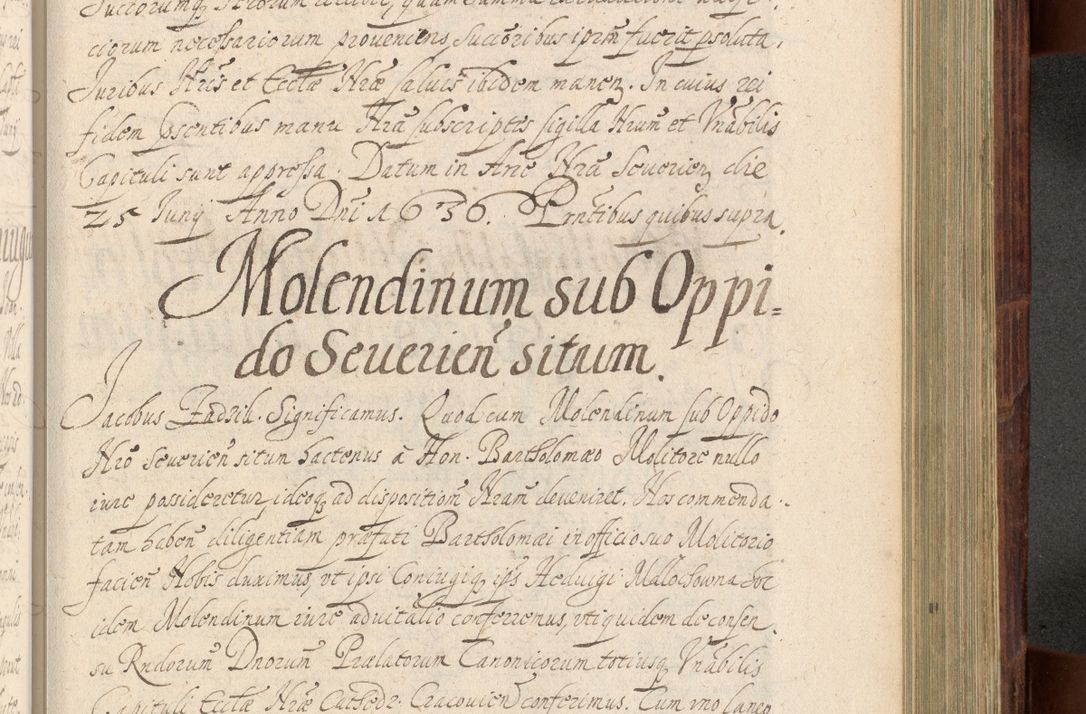 ciorum necessariorum proueniens, Succoribus ipsm̃ fuerit psoluta,
Juribus Nr̃is et Ecctæ Nræ saluis ibidem manen. In cuius rei
fidem Psentibus manu Nrã subscriptis sigilla Nrum et Vnabilis
Capituli sunt appressa. Datum in Arce Nrã Seuerien die
25 Iunij Anno Dni 1636. Prntibus quibus supra.
Molendinum sub Oppi=
do Seuerien̄ situm.
Jacobus Zadzik. Significamus. Quod cum Molendinum sub Oppido
Nrõ Seuerien̄ situm hactenus à Hon. Bartholomæo Molitore nullo
iure possideretur ideoq ad disposition̄ Nram deueniret. Nos commenda-
tam haben̄ diligentiam præfati Bartholomæi in officio suo Molitorio
facien̄ Nobis duximus, vt ipsi Coniugiq ips Heduigi Malochowna hoc
idem Molendinum iure aduitalio conferremus, vti quidem de consen
su Rndorum̄ Dnorum̄ Prælatorum Canonicorum totiusq Vnabilis
Capituli Ecctæ Nræ Cathedr. Cracouien̄ conferimus. Cum vno laneo